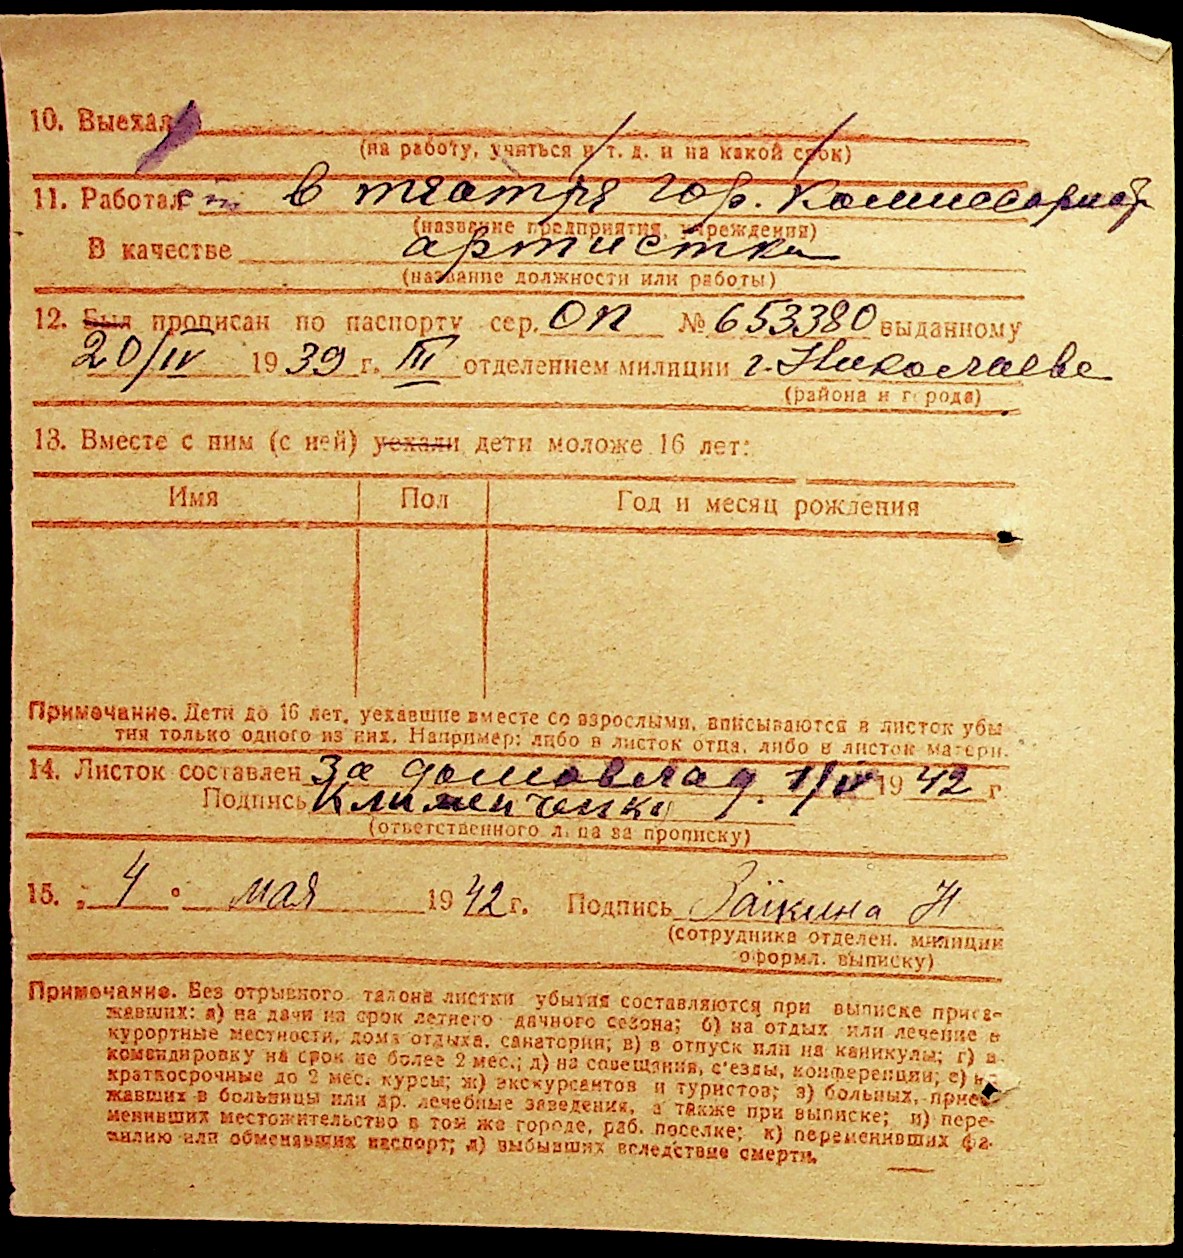 10. Выехал
(на работу, учиться и т. д. и на какой срок)
11. Работает в театре гор. Комиссариат
(название предприятия, учреждения)
В качестве артистка
(название должности или работы)
12. Был прописан по паспорту сер. ОП № 653380 выданному
20/IV 1939 г. III отделением милиции г. Николаеве
(района и города)
13. Вместе с ним (с ней) уехали дети моложе 16 лет:
Имя Пол Год и месяц рождения
Примечание. Дети до 16 лет, уехавшие вместе со взрослыми, вписываются в листок убы-
тия только одного из них. Например: либо в листок отца, либо в листок матери.
14. Листок составлен За домовлад. 1/IV 1942 г.
Подпись Клименченко
(ответственного лица за прописку)
15. „4" мая 1942 г. Подпись Заїкина Н
(сотрудника отделен. милиции
оформл. выписку)
Примечание. Без отрывного талона листки убытия составляются при выписке приез-
жавших: а) на дачи на срок летнего дачного сезона; б) на отдых или лечение в
курортные местности, дома отдыха, санатории; в) в отпуск или на каникулы; г) в
командировку на срок не более 2 мес.; д) на совещания, с'езды, конференции; е) на
краткосрочные до 2 мес. курсы; ж) экскурсантов и туристов; з) больных, приез-
жавших в больницы или др. лечебные заведения, а также при выписке; и) пере-
менивших местожительство в том же городе, раб. поселке; к) переменивших фа-
милию или обменявших паспорт; л) выбывших вследствие смерти.